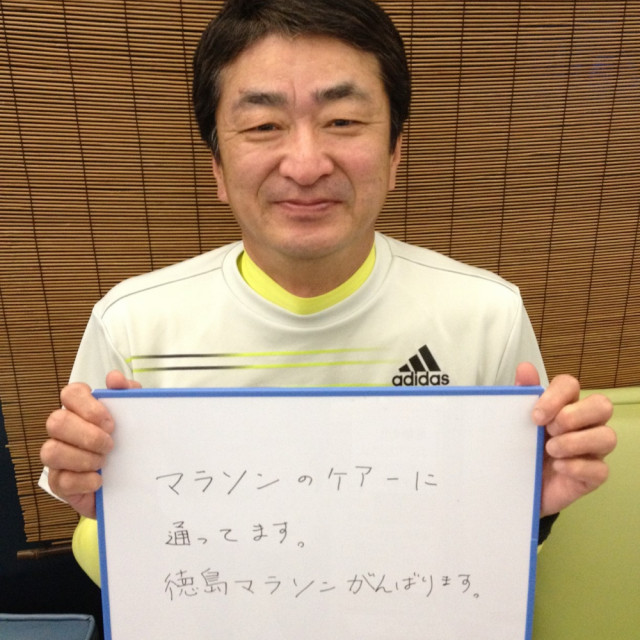 adidas
マラソンのケアーに
通ってます。
徳島マラソンがんばります。